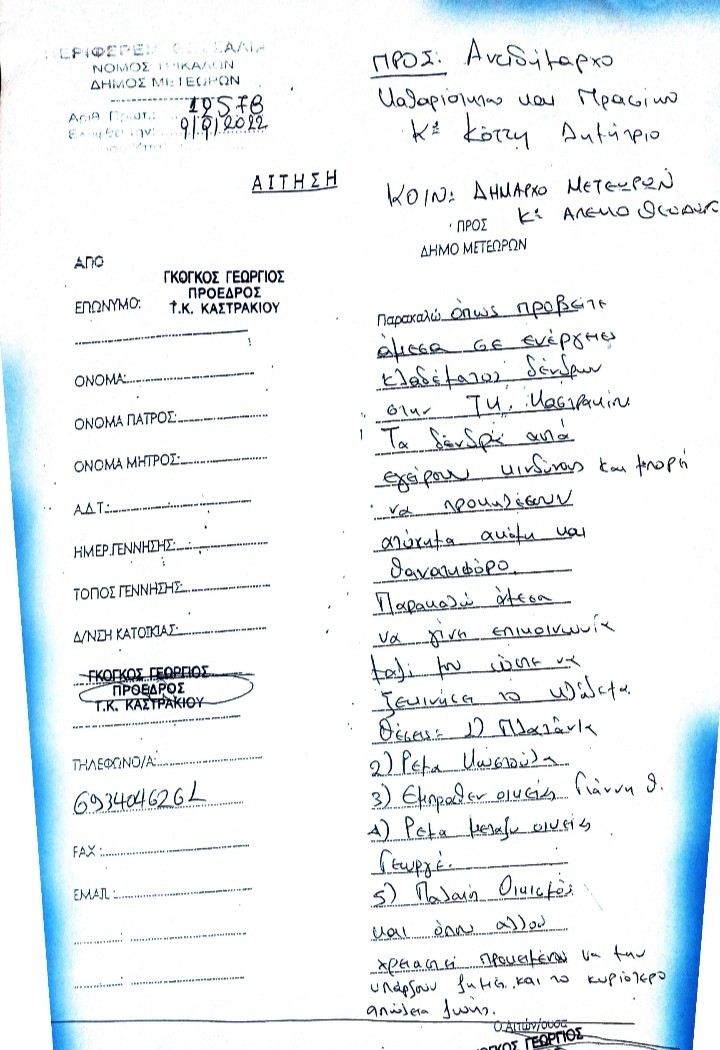 ΠΕΡΙΦΕΡΕΙΑ ΘΕΣΣΑΛΙΑΣ
ΝΟΜΟΣ ΤΡΙΚΑΛΩΝ
ΔΗΜΟΣ ΜΕΤΕΩΡΩΝ
Αριθ. Πρωτ.: 19578
9/9/2022
ΑΙΤΗΣΗ
ΑΠΟ
ΓΚΟΓΚΟΣ ΓΕΩΡΓΙΟΣ
ΠΡΟΕΔΡΟΣ
ΕΠΩΝΥΜΟ: Τ.Κ. ΚΑΣΤΡΑΚΙΟΥ
ΟΝΟΜΑ:
ΟΝΟΜΑ ΠΑΤΡΟΣ:
ΟΝΟΜΑ ΜΗΤΡΟΣ:
Α.Δ.Τ.:
ΗΜΕΡ.ΓΕΝΝΗΣΗΣ:
ΤΟΠΟΣ ΓΕΝΝΗΣΗΣ:
Δ/ΝΣΗ ΚΑΤΟΙΚΙΑΣ:
ΓΚΟΓΚΟΣ ΓΕΩΡΓΙΟΣ
ΠΡΟΕΔΡΟΣ
Τ.Κ. ΚΑΣΤΡΑΚΙΟΥ
ΤΗΛΕΦΩΝΟ/Α:
FAX :
EMAIL :
ΠΡΟΣ: Αντιδήμαρχο
Καθαριότητα και Πρασίνο
Κο Κόττη Δημήτριο
ΚΟΙΝ: ΔΗΜΑΡΧΟ ΜΕΤΕΩΡΩΝ
Κο ΑΛΕΚΟ
ΠΡΟΣ
ΔΗΜΟ ΜΕΤΕΩΡΩΝ
Παρακαλώ όπως προβείτε
άμεσα σε ενέργειες
κλαδέματος δένδρων
στην Τ.Κ. Καστρακίου
Τα δένδρα αυτά
εγείρουν κινδύνους και μπορή
να προκαλέσουν
ατύχημα ακόμη και
θανατηφόρο.
Παρακαλώ άμεσα
να γίνη επικοινωνία
μαζί μου ώστε να
ξεκινήσει το κλάδεμα.
Θέσεις: 1) Πλατάνια
2) Ρέμα Κωστούλα
3) Έμπροσθεν οικείας Γιάννη Θ.
4) Ρέμα μεταξύ οικείας
5) Παλαιή Οικισμός
και όπου αλλού
χρειαστεί προκειμένου να μην
υπάρξουν ζημιές και το κυριότερο
απώλεια ζωής.
Ο Αιτών/ουσα
ΓΚΟΓΚΟΣ ΓΕΩΡΓΙΟΣ